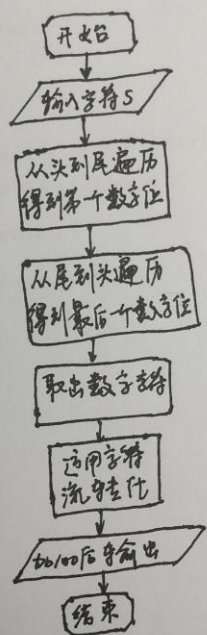 开始
输入字符S
从头到尾遍历
得到第一个数字位
从尾到头遍历
得到最后一个数字位
取出数字字符
适用字符
流转化
加100后输出
结束